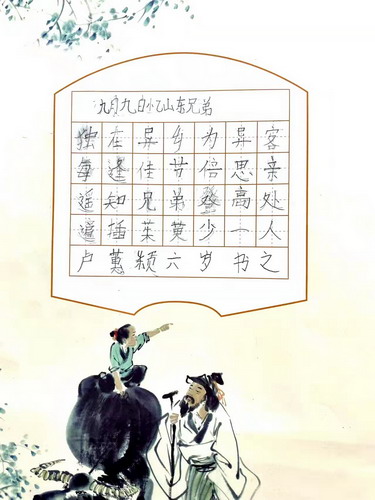 九月九日忆山东兄弟
独在异乡为异客
每逢佳节倍思亲
遥知兄弟登高处
遍插茱萸少一人
卢蕙颖六岁书之